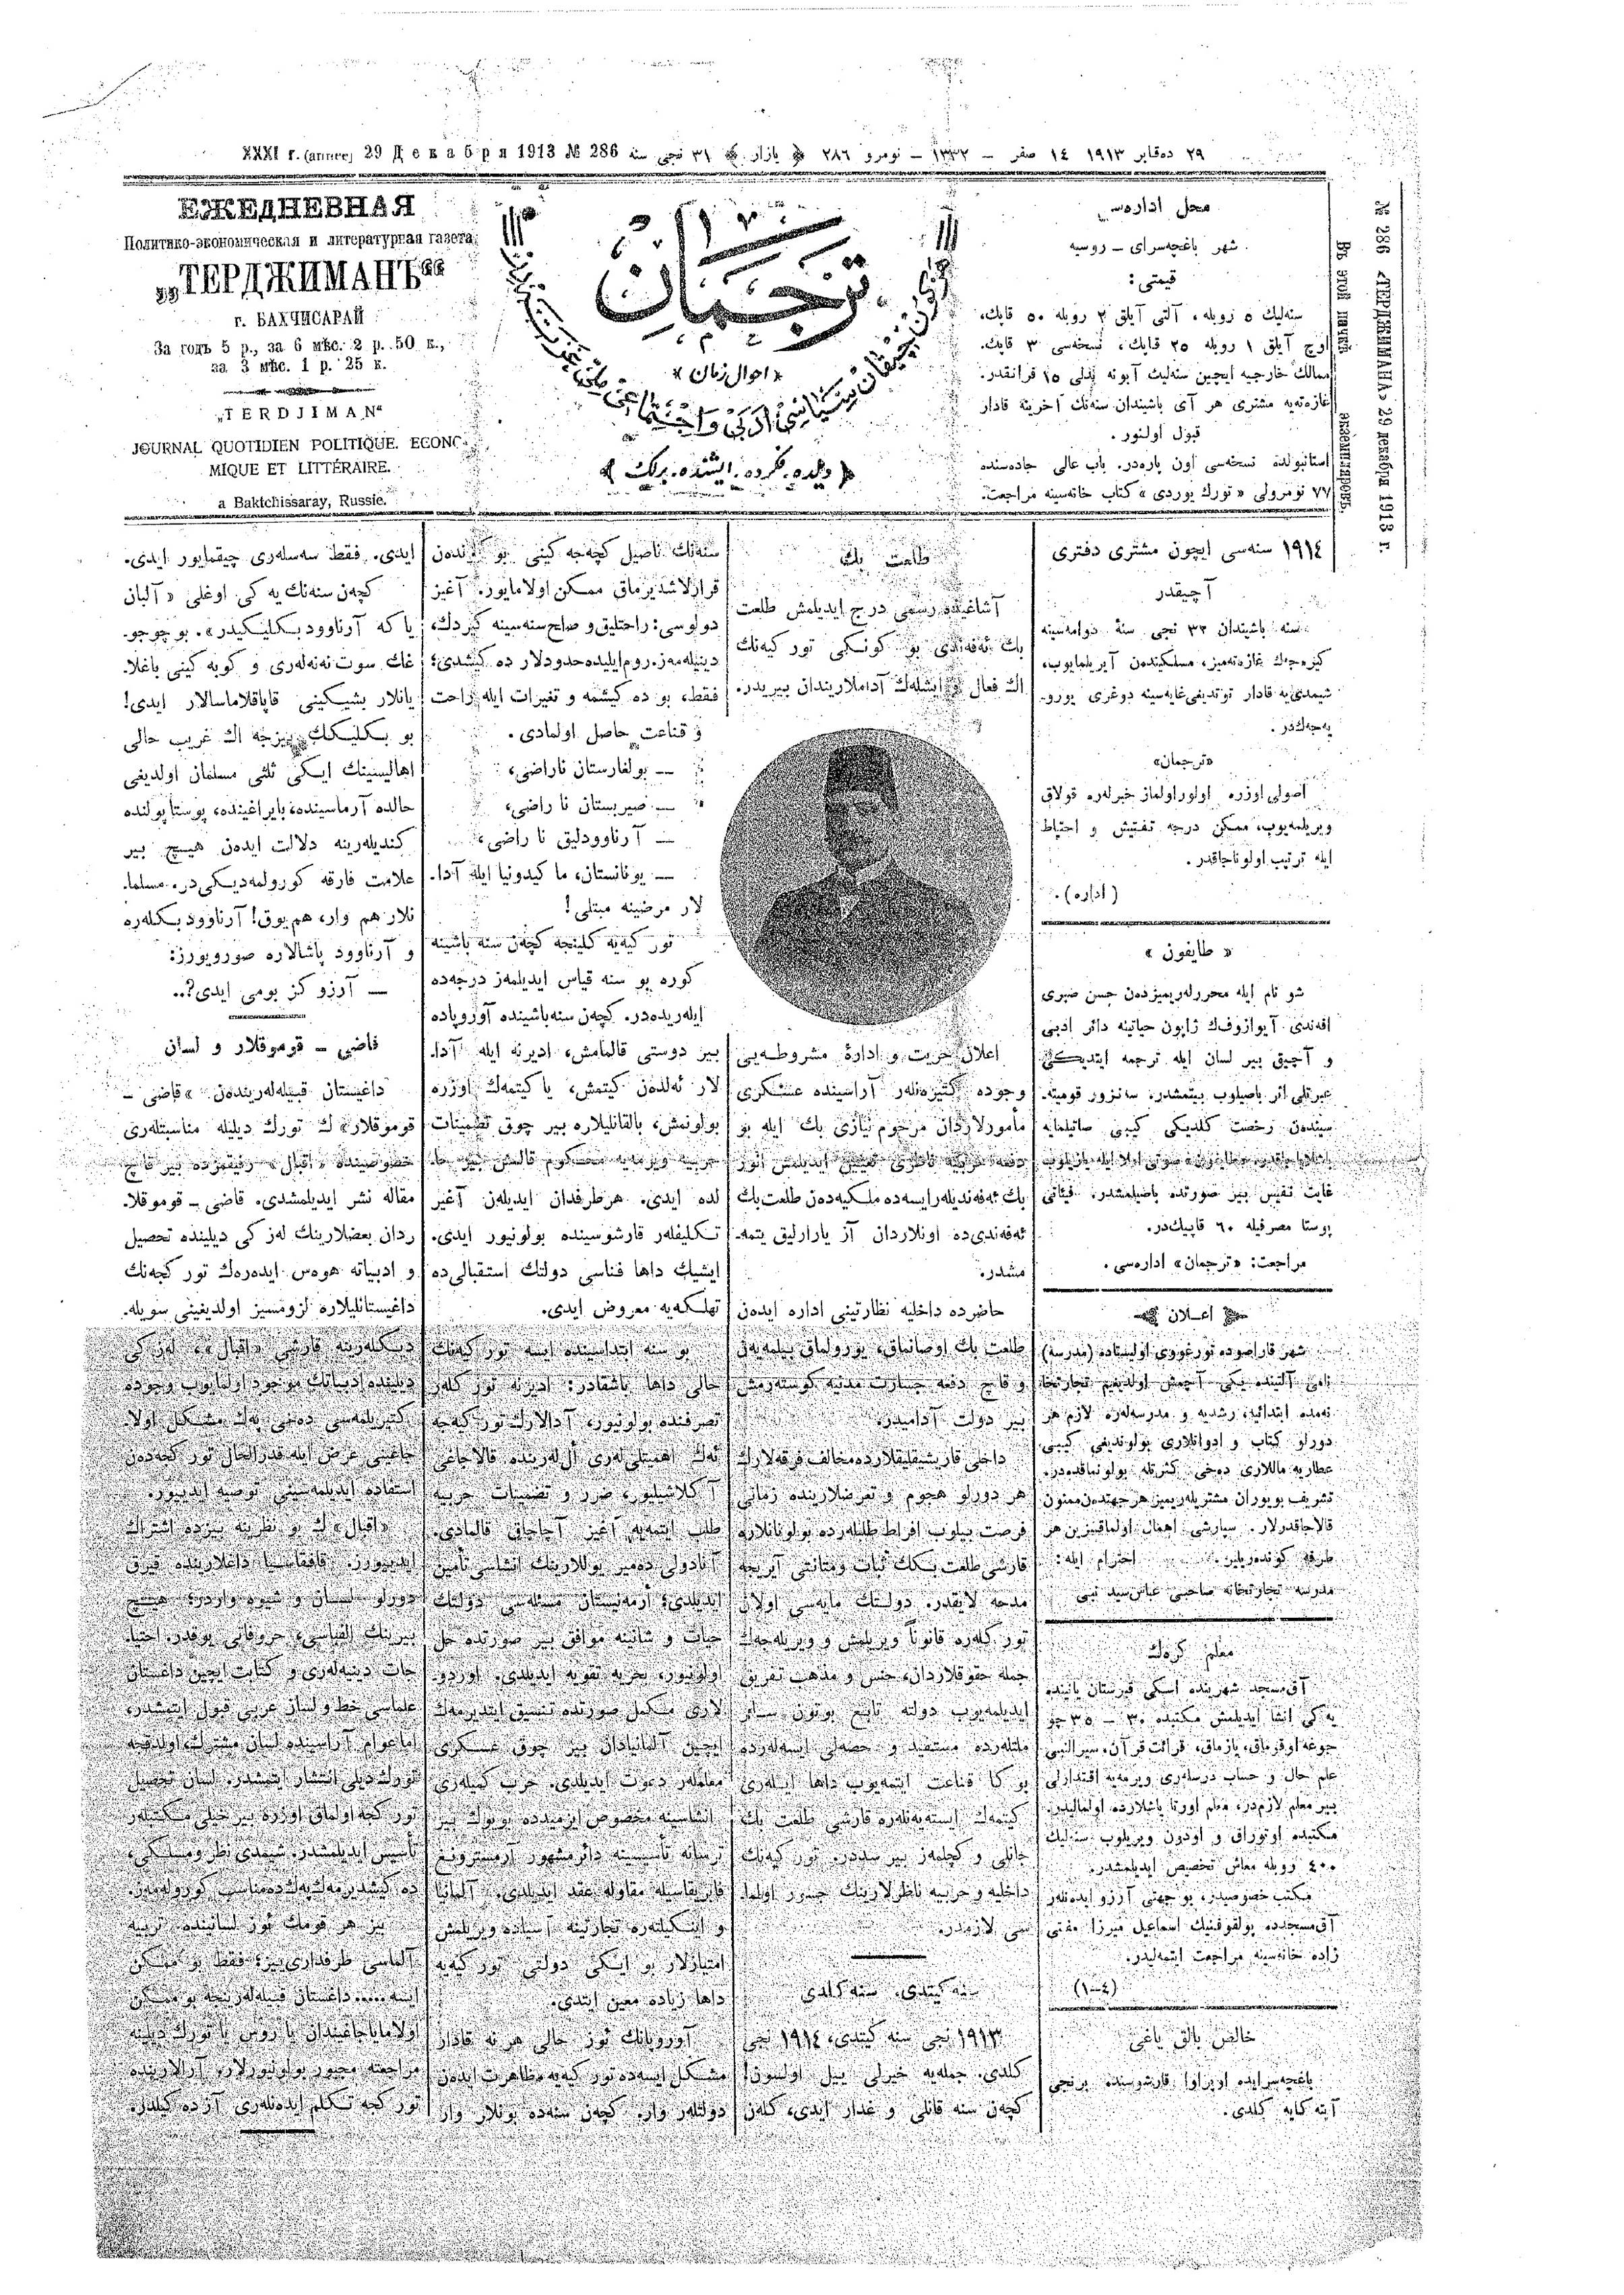 ۲۹ ده‌قابر ۱۹۱۳ ۱٤ صفر – ۱۳۳۲ – نومرو ۲۸٦ ﴿ بازار ﴾ ۳۱ نجی سنه XXXI г. (annee) 29 Декабря 1913 № 286
№ 286 «ТЕРДЖИМАНА» 29 декабря 1913 г.
Въ этой пачкѣ экземпляровъ.
ЕЖЕДНЕВНАЯ
Политико-экономическая и литературная газета
„ТЕРДЖИМАНЪ“
г. БАХЧИСАРАЙ
За годъ 5 р., за 6 мѣс. 2 р. 50 к.,
за 3 мѣс. 1 р. 25 к.
„TERDJIMAN“
JOURNAL QUOTIDIEN POLITIQUE. ECONO-
MIQUE ET LITTÉRAIRE.
a Baktchissaray, Russie.
ترجمان
«احوال زمان»
﴿ دیلده، فکرده، ایشده، برلك ﴾
محل اداره‌سی
شهر باغچه‌سرای – روسیه
قیمتی:
سنه‌لیك ٥ روبله، آلتی آیلق ۲ روبله ٥۰ قاپك،
اوچ آیلق ۱ روبله ۲٥ قاپك، نسخه‌سی ۳ قاپك.
ممالك خارجیه ایچین سنه‌لیك آبونه بدلی ۱٥ فرانقدر.
غازه‌ته‌یه مشتری هر آی باشیندان سنه‌نك آخرینه قادار
قبول اولنور.
استانبولده نسخه‌سی اون پاره‌در. باب عالی جاده‌سنده
۷۷ نومرولی «تورك یوردی» کتاب خانه‌سینه مراجعت.
۱۹۱٤ سنه‌سی ایچون مشتری دفتری
آچیقدر
سنه باشیندان ۳۲ نجی سنهٔ دوامه‌سینه
کیره‌جك غازه‌ته‌میز، مسلکیندن آیریلمایوب،
شیمدی‌یه قادار توتدیغی غایه‌سینه دوغری یورو-
یه‌جه‌كدر.
«ترجمان»
اصولی اوزره اولور اولماز خبرله‌ره قولاق
ویریلمه‌یوب، ممکن درجه تفتیش و احتیاط
ایله ترتیب اولوناجاقدر.
(اداره).
« طایفون »
شو نام ایله محررله‌ریمیزده‌ن حسن صبری
افندی آیوازوفك ژاپون حیاتینه دائر ادبی
و آچیق بیر لسان ایله ترجمه ایتدیکی
عبرتلی اثر باصیلوب بیتمشدر. سانزور قومیته-
سینده‌ن رخصت کلدیکی کیبی صاتیلمایه
غایت نفیس بیر صورتده باصیلمشدر. فیئاتی
پوستا مصرفیله ٦۰ قاپیك‌در.
مراجعت: «ترجمان» اداره‌سی.
اعـلان
شهر قاراصوده تورغووی اولیستاده (مدرسه)
نامی آلتینده یکی آچمش اولدیغیم تجارتخا-
نه‌مده ابتدائیه، رشدیه و مدرسه‌له‌ره لازم هر
دورلو کتاب و ادواتلاری بولوندیغی کیبی
عطاریه ماللاری ده‌خی کثرتله بولونماقده‌در.
تشریف بویوران مشتریله‌ریمیز هر جهتدن ممنون
قالاجاقدرلار. سپارشی اهمال اولماقسزین هر
طرفه کونده‌ریلیر. احترام ایله:
مدرسه تجارتخانه صاحبی عباس سید نبی
معلم کره‌ك
آق‌مسجد شهرینده اسکی قبرستان یانینده
یه‌کی انشا ایدیلمش مکتبده ۳۰ – ۳٥ چو-
جوغه اوقوماق، یازماق، قرائت قرآن، سیرالنبی
علم حال و حساب درسله‌ری ویرمه‌یه اقتدارلی
بیر معلم لازم‌در، معلم اورتا یاشلارده اولمالیدر.
مکتبده اوتوراق و اودون ویریلوب سنه‌لیك
٤۰۰ روبله معاش تخصیص ایدیلمشدر.
مکتب خصوصیدر، بو جهتی آرزو ایده‌نله‌ر
آق‌مسجدده پولقوفنیك اسماعیل میرزا مفتی
زاده خانه‌سینه مراجعت ایتمه‌لیدر.
(٤–۱)
خالص بالق یاغی
باغچه‌سرایده اوپراوا قارشوسنده برنجی
آپته‌کایه کلدی.
طلعت بك
آشاغیده رسمی درج ایدیلمش طلعت
بك ئه‌فه‌ندی بو کونکی تورکیه‌نك
اك فعال و ایشله‌ك آداملاریندان بیریدر.
اعلان حریت و ادارهٔ مشروطه‌یی
وجوده کتیره‌نله‌ر آراسینده عسکری
مأمورلاردان مرحوم نیازی بك ایله بو
دفعه حربیه ناظری تعیین ایدیلمش انور
بك ئه‌فه‌ندیله‌ر ایسه‌ده ملکیه‌ده‌ن طلعت بك
ئه‌فه‌ندی‌ده اونلاردان آز یارارلیق یتمه-
مشدر.
حاضرده داخلیه نظارتینی اداره ایده‌ن
طلعت بك اوصانماق، یورولماق بیلمه‌یه‌ن
و قاچ دفعه جسارت مدنیه کوسته‌رمش
بیر دولت آدامیدر.
داخلی قاریشیقلیقلارده مخالف فرقه‌لارك
هر دورلو هجوم و تعرضلارینده زمانی
فرصت بیلوب افراط طلبله‌رده بولونانلاره
قارشی طلعت بكك ثبات و متانتی آیریجه
مدحه لایقدر. دولتك مایه‌سی اولان
تورکله‌ره قانوناً ویریلمش و ویریله‌جه‌ك
جمله حقوقلاردان، جنس و مذهب تفریق
ایدیلمه‌یوب دولته تابع بوتون سائر
ملتله‌رده مستفید و حصه‌لی ایسه‌له‌رده
بوکا قناعت ایتمه‌یوب داها ایله‌ری
کیتمه‌ك ایسته‌یه‌نله‌ره قارشی طلعت بك
جانلی و کچلمه‌ز بیر سددر. تورکیه‌نك
داخلیه و حربیه ناظرلارینك جسور اولما-
سی لازمدر.
سنه کیتدی، سنه کلدی
۱۹۱۳ نجی سنه کیتدی، ۱۹۱٤ نجی
کلدی. جمله‌یه خیرلی ییل اولسون!
کچه‌ن سنه قانلی و غدار ایدی، کله‌ن
سنه‌نك ناصیل کچه‌جه‌کینی بو کونده‌ن
قرارلاشدیرماق ممکن اولامایور. آغیز
دولوسی: راحتلیق و صلح سنه‌سینه کیردك،
دینیله‌مه‌ز. روم‌ایلیده حدودلار ده‌کیشدی؛
فقط، بو ده‌کیشمه و تغیرات ایله راحت
و قناعت حاصل اولمادی.
— بولغارستان ناراضی،
— صیربستان نا راضی،
— آرناوودلیق نا راضی،
— یونانستان، ماکیدونیا ایله آدا-
لار مرضینه مبتلی!
تورکیه‌یه کلینجه کچه‌ن سنه باشینه
کوره بو سنه قیاس ایدیلمه‌ز درجه‌ده
ایله‌ریده‌در. کچه‌ن سنه باشینده آوروپاده
بیر دوستی قالمامش، ادیرنه ایله آدا-
لار ئه‌لده‌ن کیتمش، یا کیتمه‌ك اوزره
بولونمش، بالقانلیلاره بیر چوق تضمینات
حربیه ویرمه‌یه محکوم قالمش بیر حا-
لده ایدی. هر طرفدان ایدیله‌ن آغیر
تکلیفله‌ر قارشوسینده بولونیور ایدی.
ایشیك داها فناسی دولتك استقبالی‌ده
تهلکه‌یه معروض ایدی.
بو سنه ابتداسینده ایسه تورکیه‌نك
حالی داها باشقادر: ادیرنه تورکله‌ر
تصرفنده بولونیور، آدالارك تورکیه‌جه
ئه‌ك اهمیتلی‌له‌ری أل‌له‌رینده قالاجاغی
آکلاشیلیور، ضرر و تضمینات حربیه
طلب ایتمه‌یه آغیز آچاجاق قالمادی.
آنادولی ده‌میر یوللارینك انشاسی تأمین
ایدیلدی؛ أرمه‌نیستان مسئله‌سی دولتك
حیات و شانینه موافق بیر صورتده حل
اولونیور، بحریه تقویه ایدیلدی. اوردو-
لاری مکمل صورتده تنسیق ایتدیرمه‌ك
ایچین آلمانیادان بیر چوق عسکری
معلمله‌ر دعوت ایدیلدی. حرب کمیله‌ری
انشاسینه مخصوص ازمیدده بویوك بیر
ترسانه تأسیسینه دائر مشهور آرمسترونغ
فابریقاسیله مقاوله عقد ایدیلدی. آلمانیا
و اینکیلتره تجارتینه آسیاده ویریلمش
امتیازلار بو ایکی دولتی تورکیه‌یه
داها زیاده معین ایتدی.
آوروپانك ئوز حالی هر نه قادار
مشکل ایسه‌ده تورکیه‌یه مظاهرت ایده‌ن
دولتله‌ر وار. کچه‌ن سنه‌ده بونلار وار
ایدی. فقط سه‌سله‌ری چیقمایور ایدی.
کچه‌ن سنه‌نك یه‌کی اوغلی «آلبان
یا که آرناوود بکلیکیدر». بو چوجو-
غك سوت نه‌نه‌له‌ری و کوبه‌کینی باغلا-
یانلار بشیکینی قاپاقلاماسالار ایدی!
بو بکلیکك بیزجه اك غریب حالی
اهالیسینك ایکی ثلثی مسلمان اولدیغی
حالده آرماسینده، بایراغینده، پوستا پولنده
کندیله‌رینه دلالت ایده‌ن هیچ بیر
علامت فارقه کورولمه‌دیکی‌در. مسلما-
نلار هم وار، هم یوق! آرناوود بکله‌ره
و آرناوود پاشالاره صورویورز:
— آرزوکز بومی ایدی؟..
قاضی – قوموقلار و لسان
داغیستان قبیله‌له‌رینده‌ن «قاضی –
قوموقلار» ك تورك دیلیله مناسبتله‌ری
خصوصینده «اقبال» رفیقمزده بیر قاچ
مقاله نشر ایدیلمشدی. قاضی – قوموقلا-
ردان بعضلارینك له‌زکی دیلینده تحصیل
و ادبیاته هوه‌س ایده‌ره‌ك تورکجه‌نك
داغیستانلیلاره لزومسیز اولدیغینی سویله-
دیکله‌رینه قارشی «اقبال»، له‌زکی
دیلینده ادبیاتك موجود اولمایوب وجوده
کتیریلمه‌سی ده‌خی په‌ك مشکل اولا-
جاغینی عرض ایله قدرالحال تورکجه‌ده‌ن
استفاده ایدیلمه‌سینی توصیه ایدییور.
«اقبال» ك بو نظرینه بیزده اشتراك
ایدییورز. قافقاسیا داغلارینده قیرق
دورلو لسان و شیوه واردر؛ هیچ
بیرینك الفباسی، حروفاتی یوقدر. احتیا-
جات دینیه‌له‌ری و کتابت ایچین داغستان
علماسی خط و لسان عربی قبول ایتمشدر،
اما عوام آراسینده لسان مشترك اولدقجه
تورك دیلی انتشار ایتمشدر. لسان تحصیل
تورکجه اولماق اوزره بیر خیلی مکتبله‌ر
تأسیس ایدیلمشدر. شیمدی نظر و مسلکی،
ده‌کیشدیرمه‌ك په‌ك‌ده مناسب کورولمه‌ز.
بیز هر قومك ئوز لسانینده تربیه
آلماسی طرفداری‌ییز؛ فقط بو ممکن
ایسه..... داغستان قبیله‌له‌رینجه بو ممکن
اولامایاجاغیندان یا روس یا تورك دیلینه
مراجعته مجبور بولونیورلار، آرالارینده
تورکجه تکلم ایده‌نله‌ری آز ده‌کیلدر.